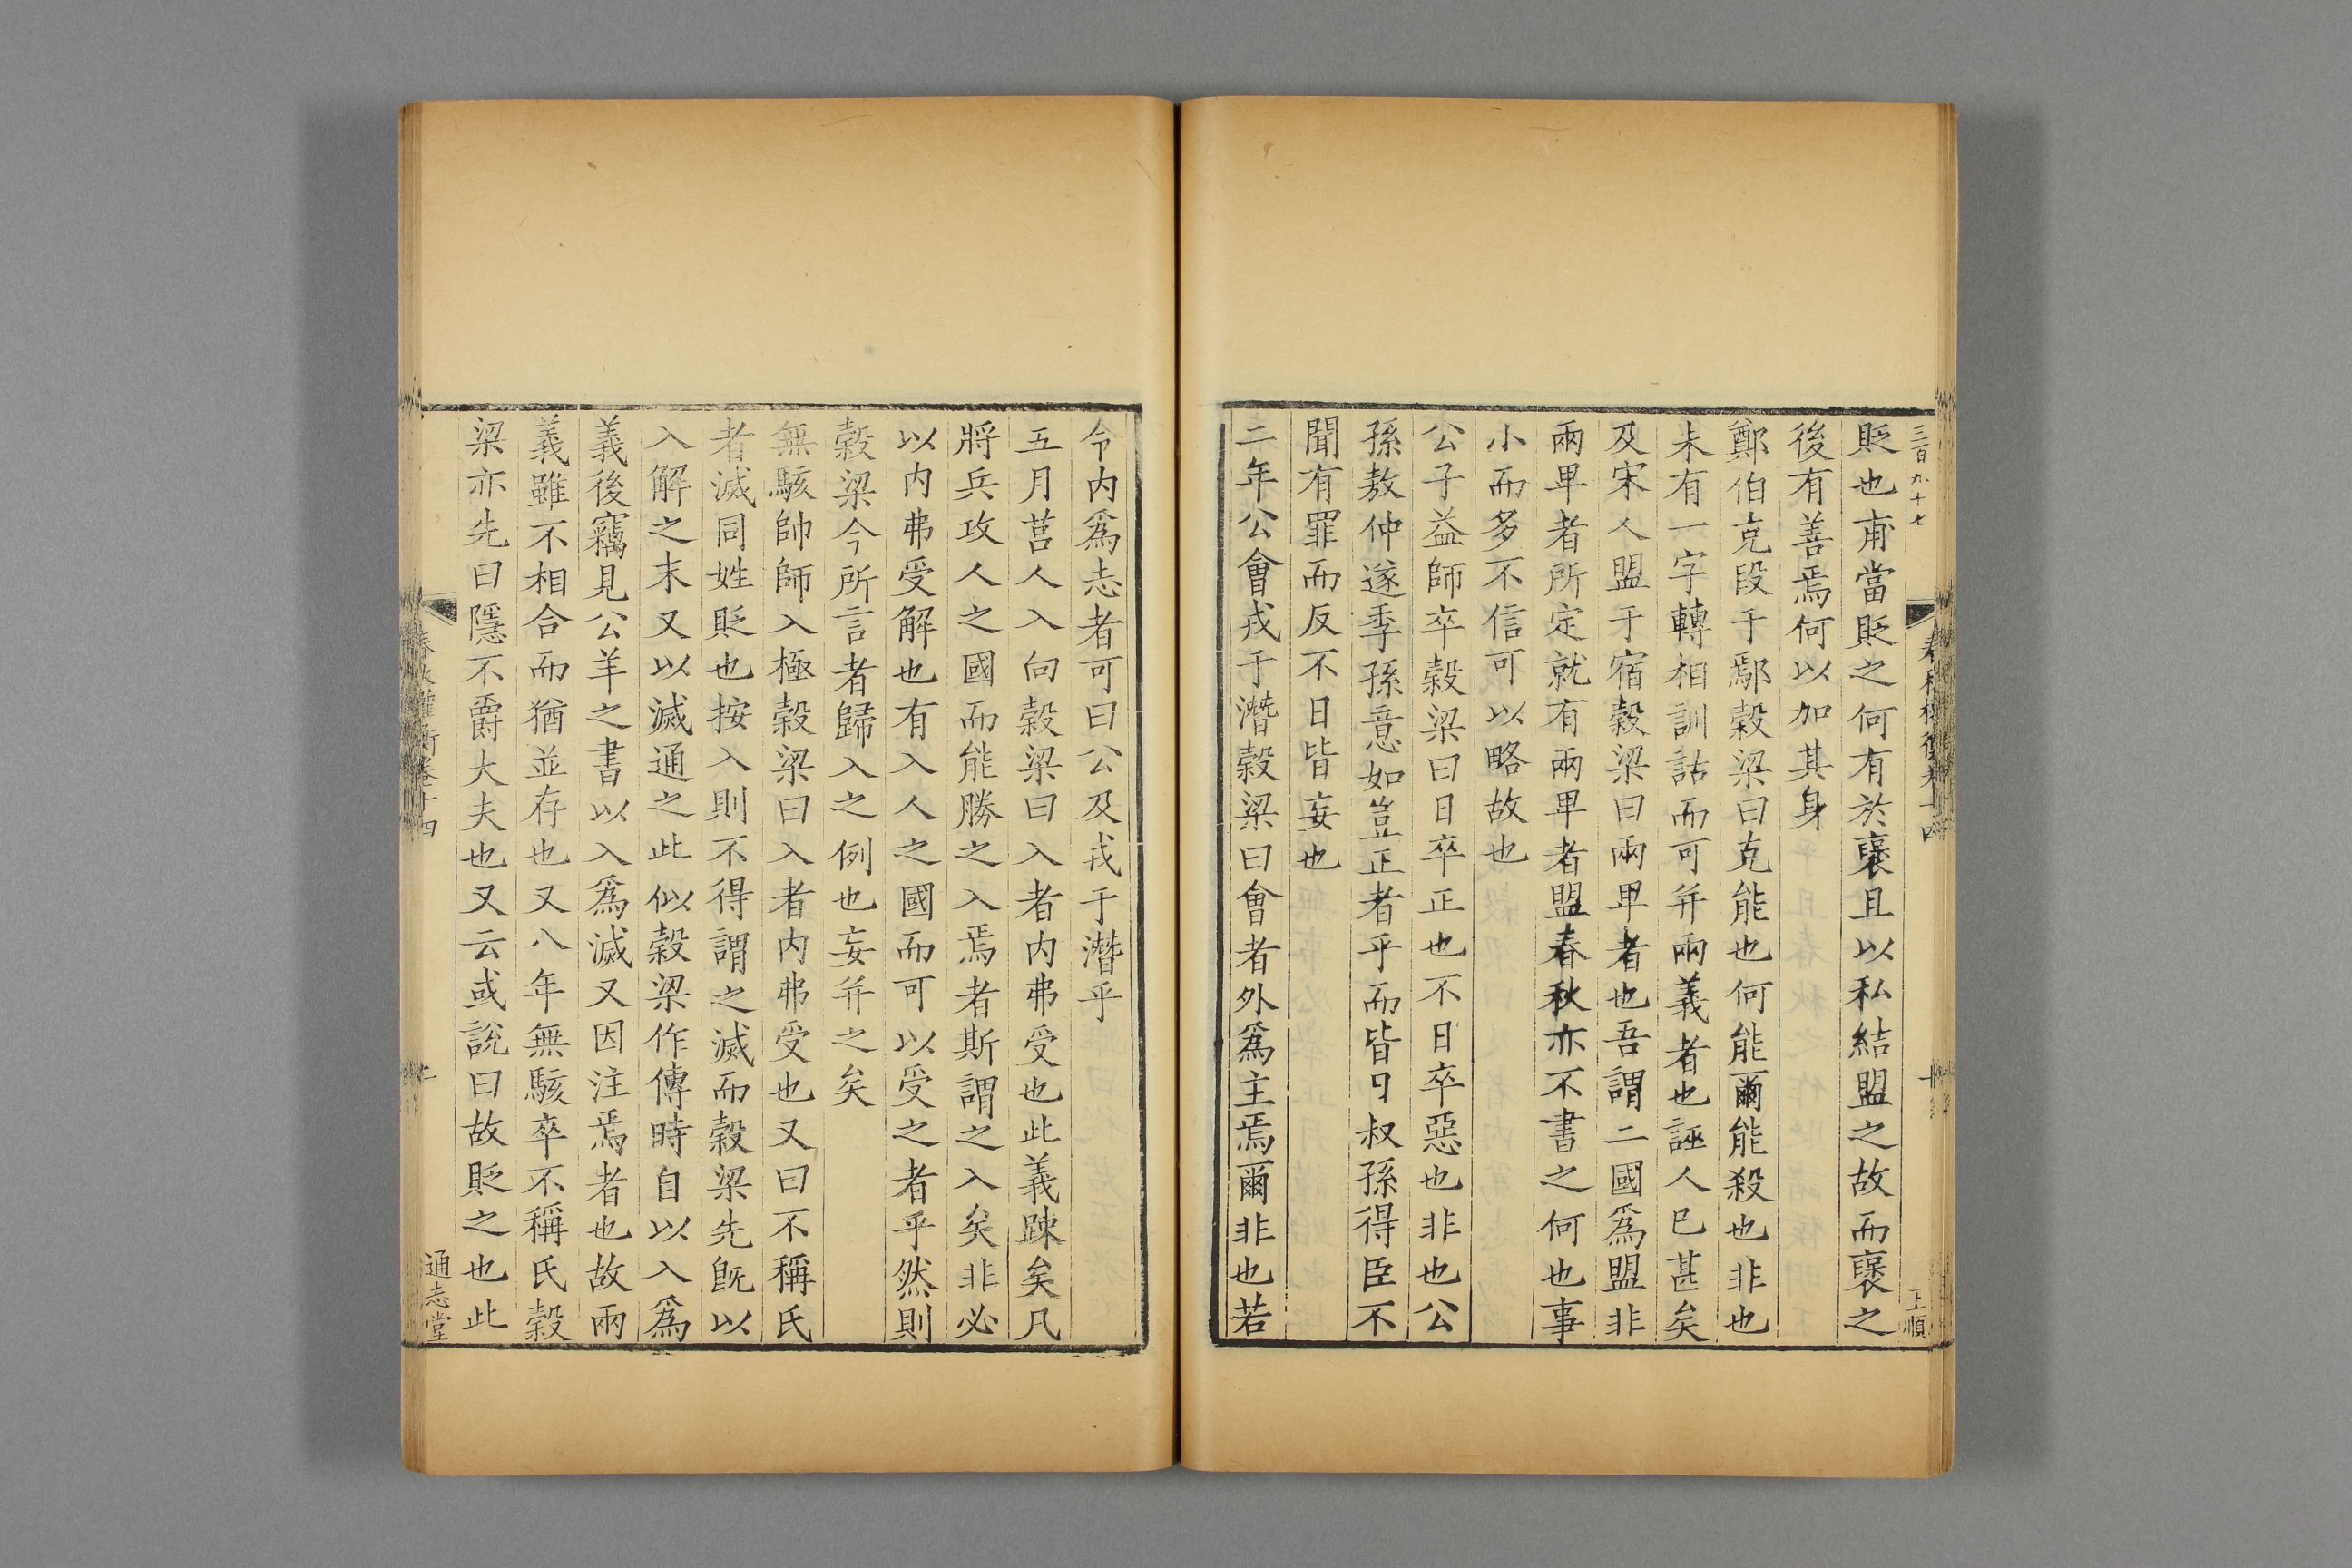 三百九十七
王順
貶也甫當貶之何有於襃且以私結盟之故而襃之
後有善焉何以加其身
鄭伯克段于鄢穀梁曰克能也何能爾能殺也非也
未有一字轉相訓詁而可并兩義者也誣人已甚矣
及宋人盟于宿穀梁曰兩卑者也吾謂二國爲盟非
兩卑者所定就有兩卑者盟春秋亦不書之何也事
小而多不信可以略故也
公子益師卒穀梁曰日卒正也不日卒惡也非也公
孫敖仲遂季孫意如豈正者乎而皆日叔孫得臣不
聞有罪而反不日皆妄也
二年公會戎于潛穀梁曰會者外爲主焉爾非也若
令內爲志者可曰公及戎于潛乎
五月莒人入向穀梁曰入者內弗受也此義踈矣凡
將兵攻人之國而能勝之入焉者斯謂之入矣非必
以內弗受解也有入人之國而可以受之者乎然則
穀梁今所言者歸入之例也妄并之矣
無駭帥師入極穀梁曰入者內弗受也又曰不稱氏
者滅同姓貶也按入則不得謂之滅而穀梁先旣以
入解之末又以滅通之此似穀梁作傳時自以入爲
義後竊見公羊之書以入爲滅又因注焉者也故兩
義雖不相合而猶並存也又八年無駭卒不稱氏穀
梁亦先曰隱不爵大夫也又云或說曰故貶之也此
春秋權衡卷十四
通志堂